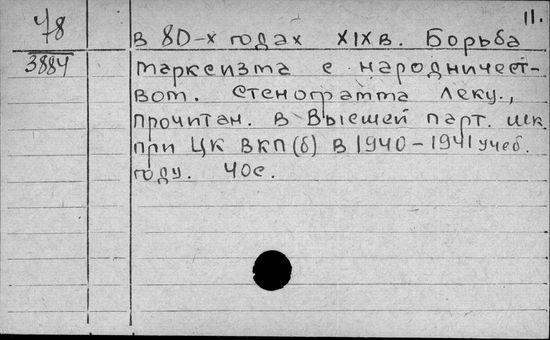 11.
48
3884
в 80-х годах XIX в. Борьба
марксизма с народничест-
вом. Стенограмма лекц.,
прочитан. в Высшей парт. шк.
при ЦК ВКП(б) в 1940-1941 учеб.
году. 40с.